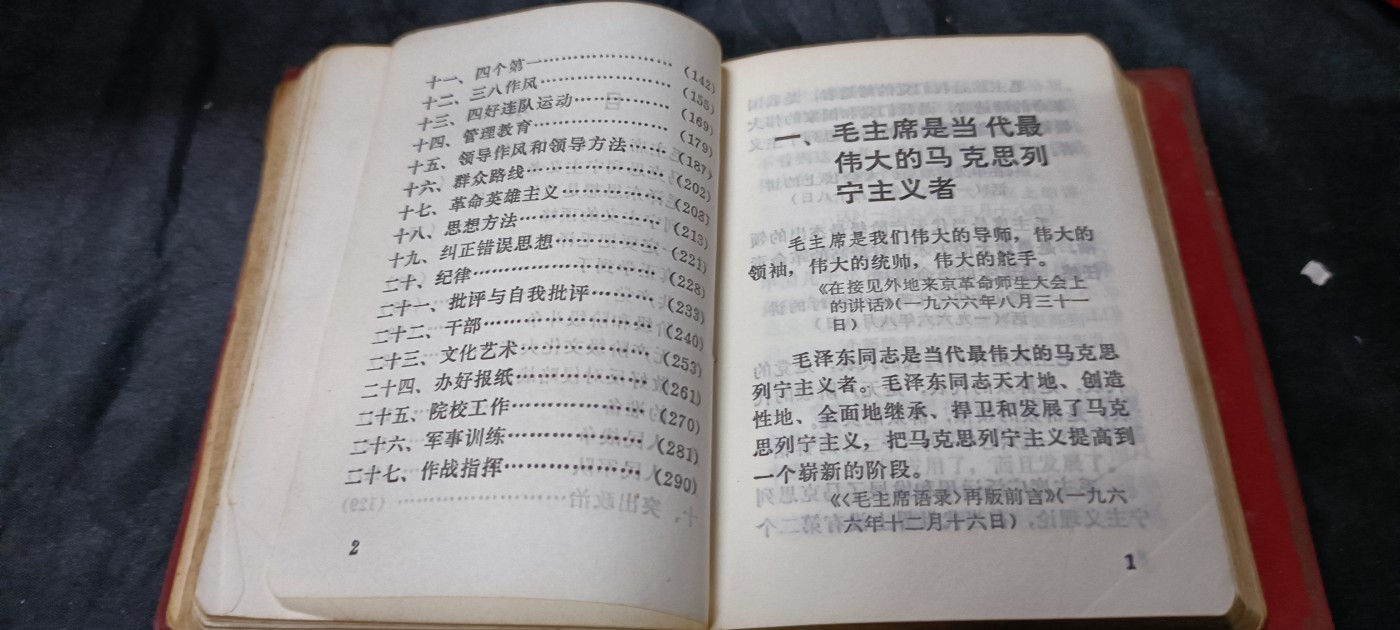 十一、四个第一……………………（142）
十二、三八作风……………………（155）
十三、四好连队运动………………（169）
十四、管理教育……………………（179）
十五、领导作风和领导方法……（187）
十六、群众路线……………………（202）
十七、革命英雄主义………………（208）
十八、思想方法……………………（213）
十九、纠正错误思想………………（221）
二十、纪律…………………………（228）
二十一、批评与自我批评………（233）
二十二、干部………………………（240）
二十三、文化艺术…………………（253）
二十四、办好报纸…………………（261）
二十五、院校工作…………………（270）
二十六、军事训练…………………（281）
二十七、作战指挥…………………（290）
2
一、毛主席是当代最
伟大的马克思列
宁主义者
毛主席是我们伟大的导师，伟大的
领袖，伟大的统帅，伟大的舵手。
《在接见外地来京革命师生大会上
的讲话》（一九六六年八月三十一
日）
毛泽东同志是当代最伟大的马克思
列宁主义者。毛泽东同志天才地、创造
性地、全面地继承、捍卫和发展了马克
思列宁主义，把马克思列宁主义提高到
一个崭新的阶段。
《〈毛主席语录〉再版前言》（一九六
六年十二月十六日）
1